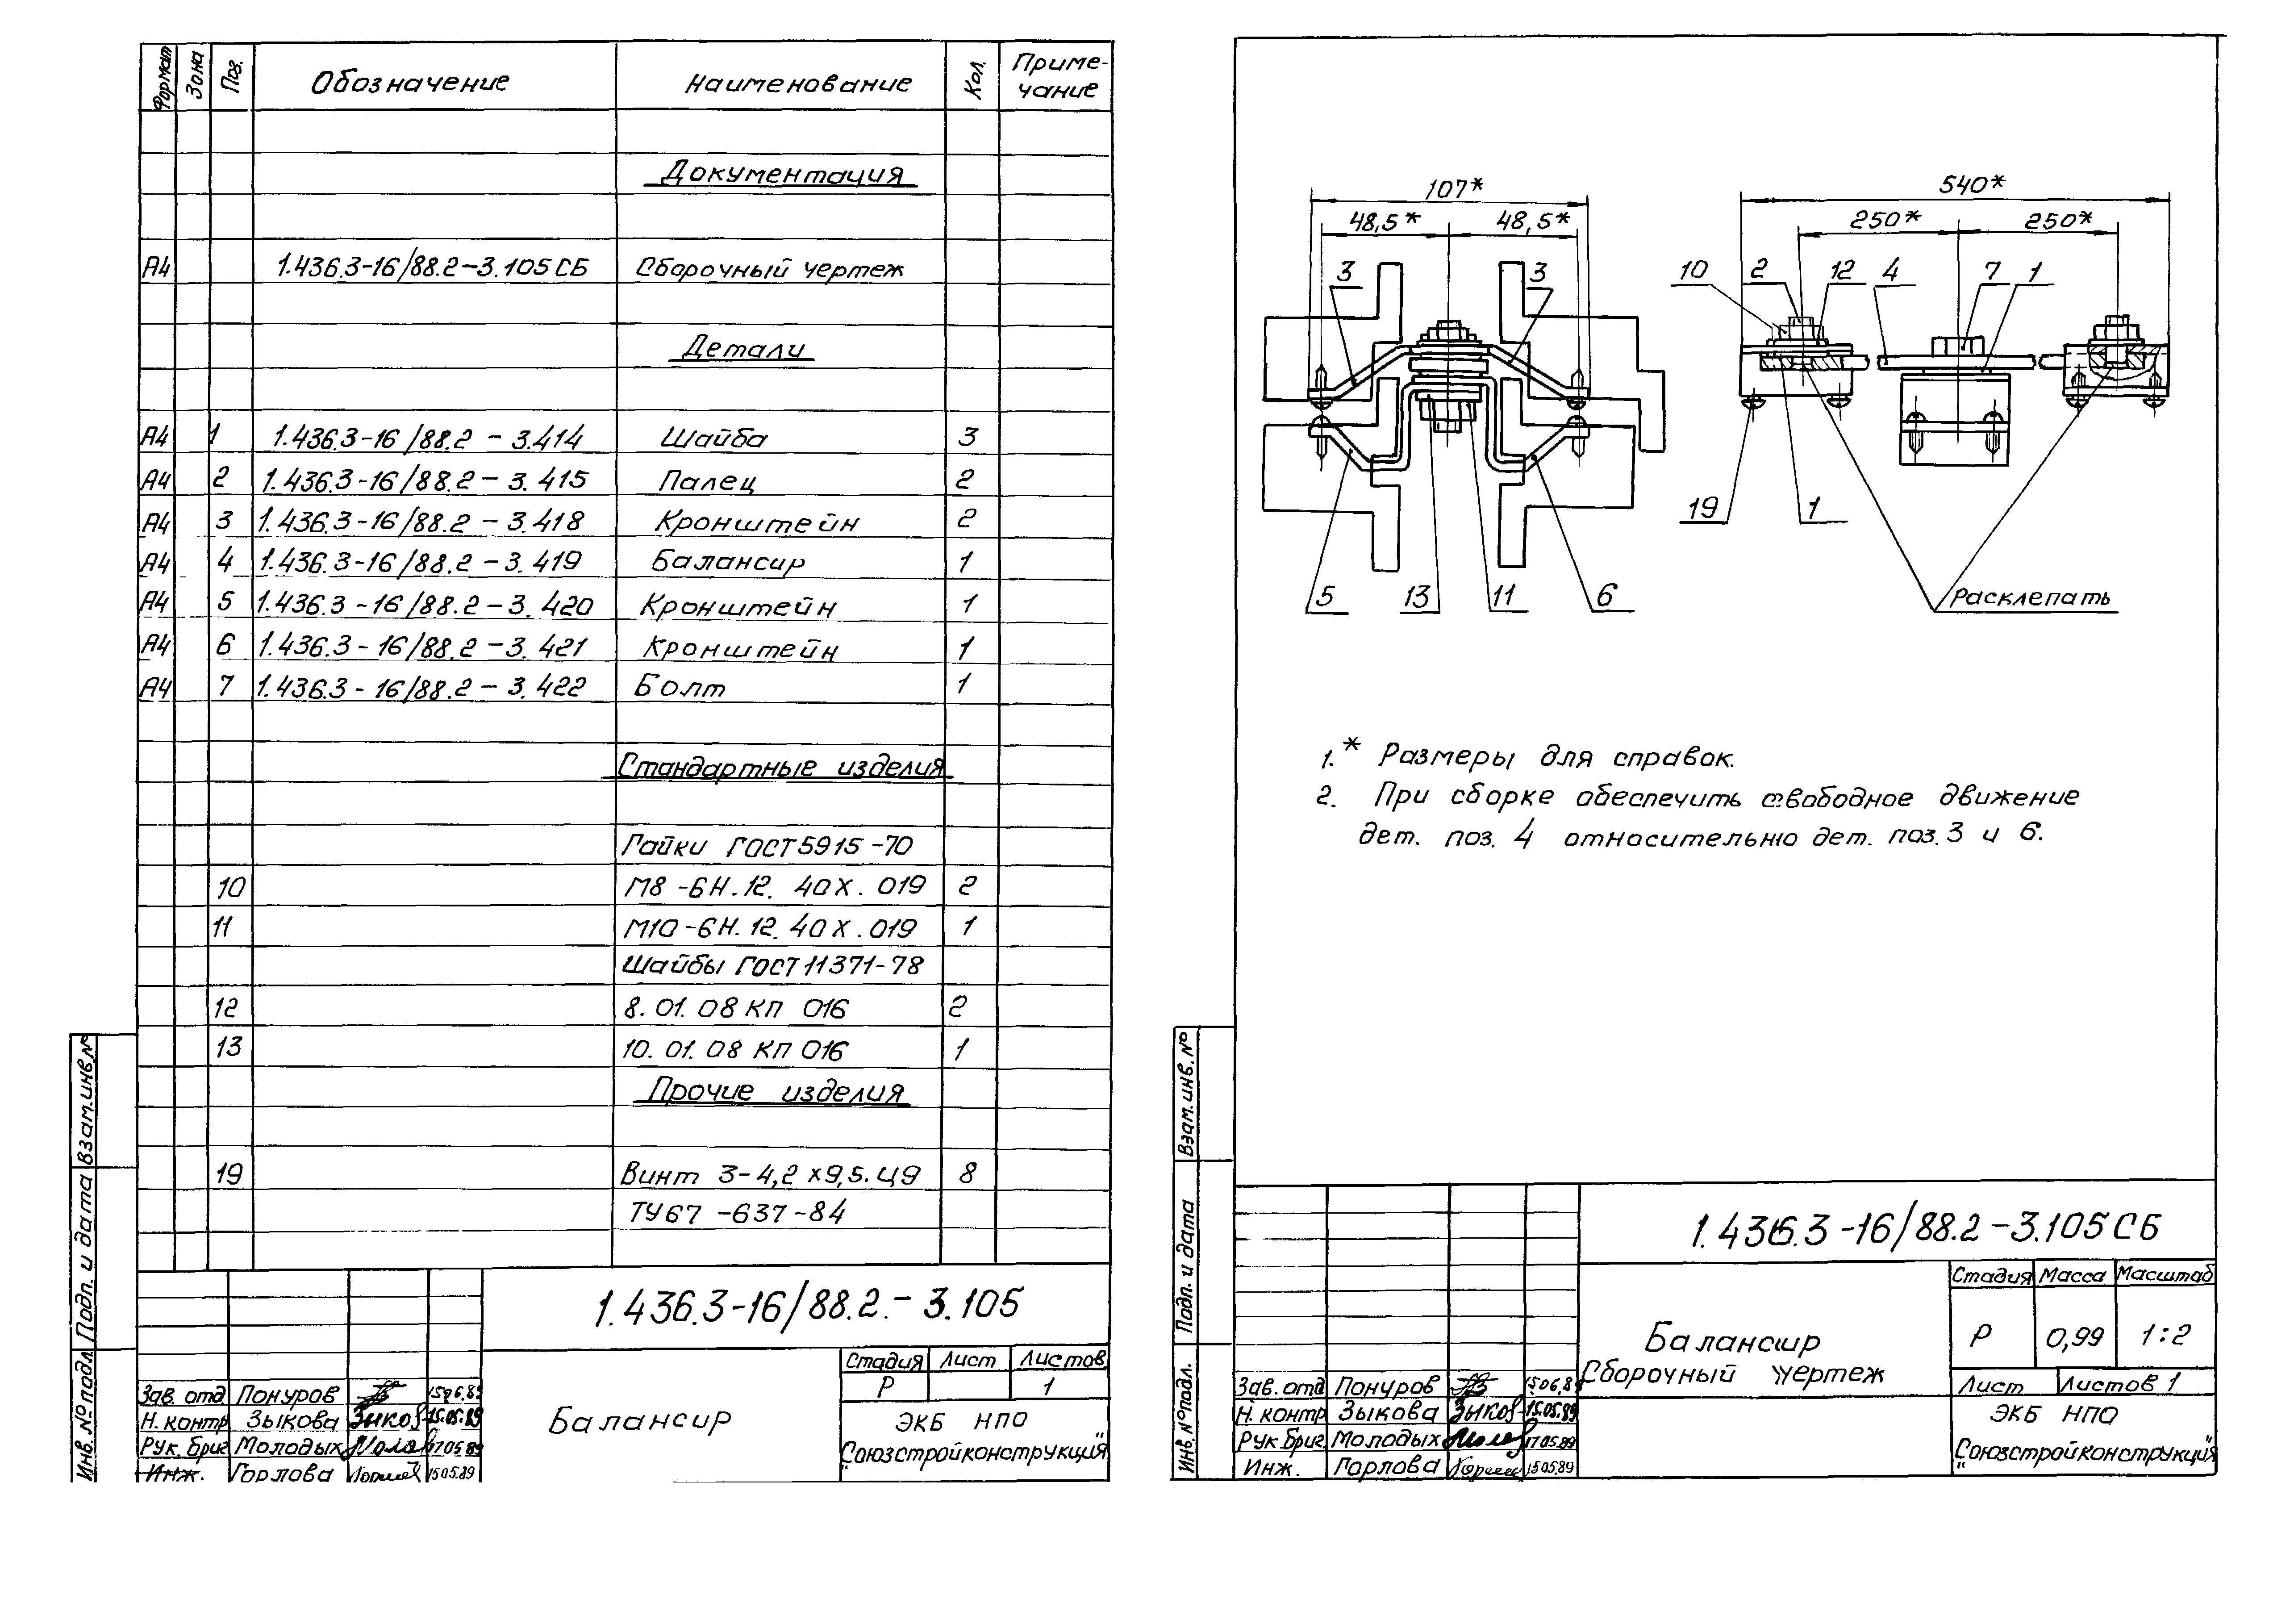 Формат Зона Поз. Обозначение Наименование Кол. Приме-
чание
Документация
А4 1.436.3-16/88.2-3.105 СБ Сборочный чертеж
Детали
А4 1 1.436.3-16/88.2-3.414 Шайба 3
А4 2 1.436.3-16/88.2-3.415 Палец 2
А4 3 1.436.3-16/88.2-3.418 Кронштейн 2
А4 4 1.436.3-16/88.2-3.419 Балансир 1
А4 5 1.436.3-16/88.2-3.420 Кронштейн 1
А4 6 1.436.3-16/88.2-3.421 Кронштейн 1
А4 7 1.436.3-16/88.2-3.422 Болт 1
Стандартные изделия
Гайки ГОСТ 5915-70
10 М8-6Н.12.40Х.019 2
11 М10-6Н.12.40Х.019 1
Шайбы ГОСТ 11371-78
12 8.01.08 КП 016 2
13 10.01.08 КП 016 1
Прочие изделия
19 Винт 3-4,2х9,5.Ц9 8
ТУ67-637-84
Взам.инв.№
Подп. и дата
Инв. № подл
1.436.3-16/88.2.-3.105
Стадия Лист Листов
Р 1
Зав. отд Понуров 15.06.89
Н. контр Зыкова Зыков 15.05.89
Рук. бриг. Молодых 17.05.89
Инж. Горлова 15.05.89
Балансир
ЭКБ НПО
"Союзстройконструкция"
107*
48,5* 48,5*
3 3
5 13 11 6
540*
250* 250*
10 2 12 4 7 1
19 1
Расклепать
1.* Размеры для справок.
2. При сборке обеспечить свободное движение
дет. поз. 4 относительно дет. поз. 3 и 6.
Взам. инв. №
Подп. и дата
Инв. № подл.
1.436.3-16/88.2-3.105 СБ
Стадия Масса Масштаб
Р 0,99 1:2
Балансир
Сборочный чертеж
Лист Листов 1
Зав. отд Понуров 15.06.89
Н. контр Зыкова Зыков 15.05.89
Рук. бриг. Молодых 17.05.89
Инж. Горлова 15.05.89
ЭКБ НПО
"Союзстройконструкция"